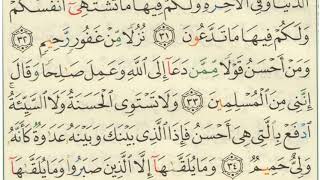 الدُّنْيَا وَفِي الْآخِرَةِ وَلَكُمْ فِيهَا مَا تَشْتَهِي أَنفُسُكُمْ
وَلَكُمْ فِيهَا مَا تَدَّعُونَ ٣١ نُزُلًا مِّنْ غَفُورٍ رَّحِيمٍ ٣٢
وَمَنْ أَحْسَنُ قَوْلًا مِّمَّن دَعَا إِلَى اللَّهِ وَعَمِلَ صَالِحًا وَقَالَ
إِنَّنِي مِنَ الْمُسْلِمِينَ ٣٣ وَلَا تَسْتَوِي الْحَسَنَةُ وَلَا السَّيِّئَةُ
ادْفَعْ بِالَّتِي هِيَ أَحْسَنُ فَإِذَا الَّذِي بَيْنَكَ وَبَيْنَهُ عَدَاوَةٌ كَأَنَّهُ
وَلِيٌّ حَمِيمٌ ٣٤ وَمَا يُلَقَّاهَا إِلَّا الَّذِينَ صَبَرُوا وَمَا يُلَقَّاهَا